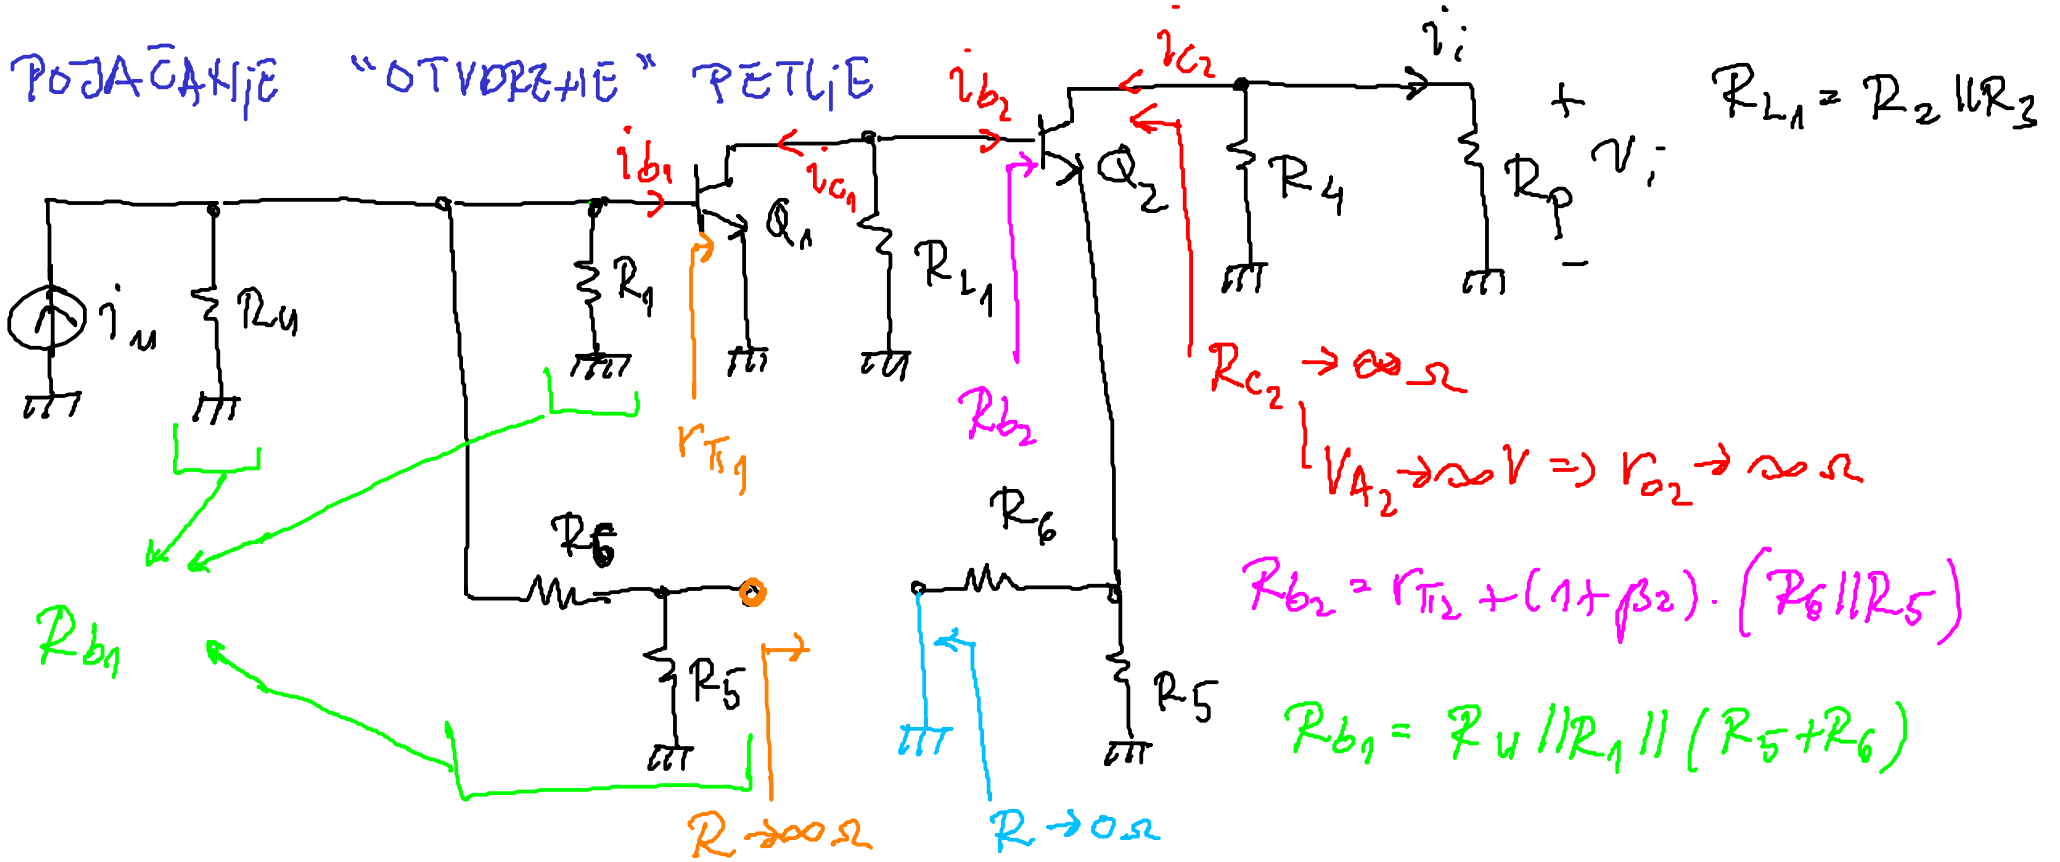 POJAČANJE "OTVORENE" PETLJE
i_i
i_c2
i_b2
R_L1 = R_2 || R_3
+
v_i
-
i_b1
i_c1
Q_1
Q_2
R_4
R_p
i_u
R_u
R_1
R_L1
r_π1
R_b2
R_c2 → ∞ Ω
V_A2 → ∞ V => r_o2 → ∞ Ω
R_6
R_6
R_b2 = r_π2 + (1+β2) · (R_6 || R_5)
R_b1
R_5
R_5
R_b1 = R_u || R_1 || (R_5 + R_6)
R → ∞ Ω
R → 0 Ω